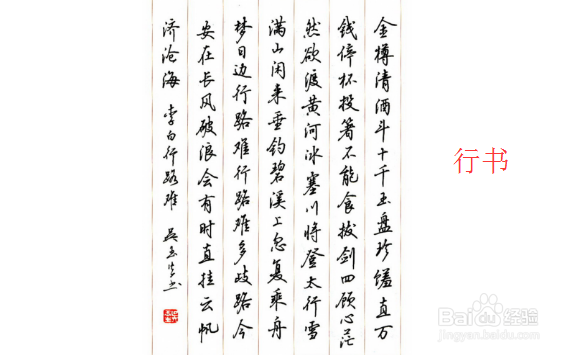 金樽清酒斗十千玉盘珍馐直万
钱停杯投箸不能食拔剑四顾心茫
然欲渡黄河冰塞川将登太行雪
满山闲来垂钓碧溪上忽复乘舟
梦日边行路难行路难多歧路今
安在长风破浪会有时直挂云帆
济沧海 李白行路难 吴玉生书
行书
Baidu经验
jingyan.baidu.com